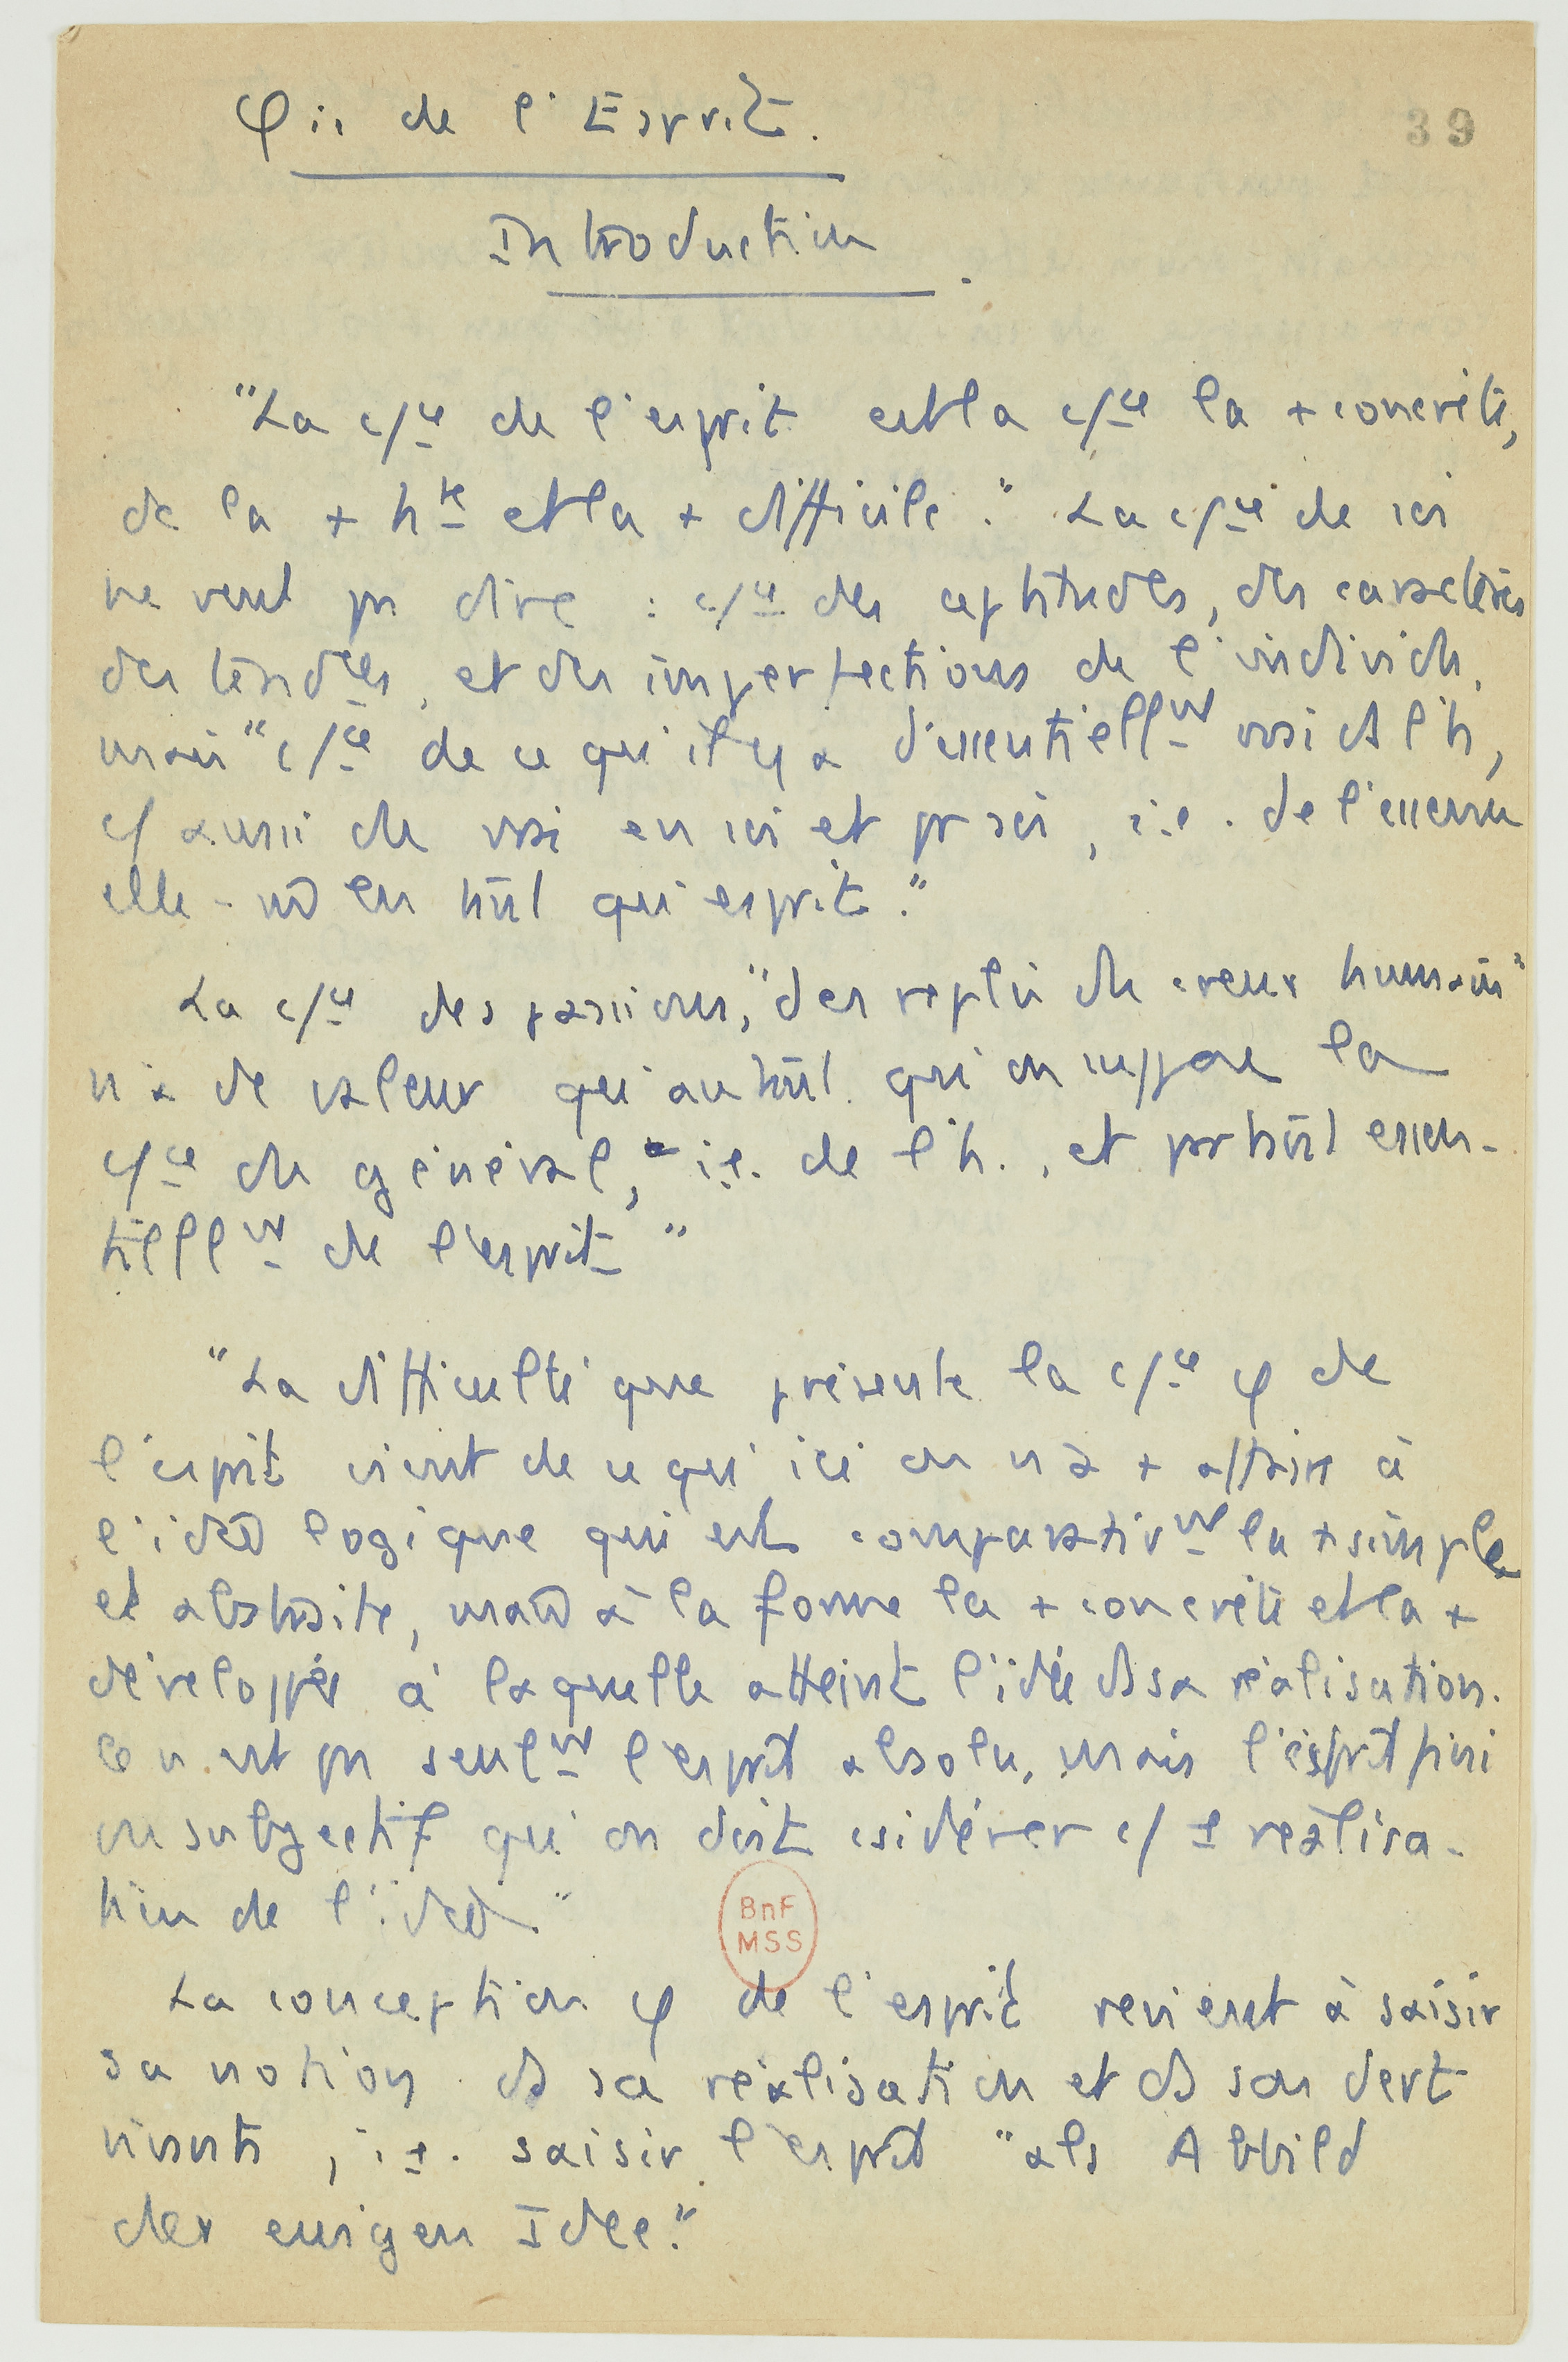 φie de l'Esprit.
39
Introduction.
"La c/ce de l'esprit est la c/ce la + concrète,
de la + hte et la + difficile." La c/ce de soi
ne veut pr dire : c/ce des aptitudes, des caractères
des tendces, et des imperfections de l'individu,
mais "c/ce de ce qu'il y a d'essentiellnt vrai ds l'h,
c/ aussi du vrai en soi et pr soi, i.e. de l'essence
elle-m en tant qu'esprit."
La c/ce des passions, "des replis du coeur humain"
n'a de valeur qu'autant qu'on suppose la
c/ce du général, i.e. de l'h., et par tant essen-
tiellnt de l'esprit"
"La difficulté que présente la c/ce φ de
l'esprit vient de ce qu'ici on n'a + affaire à
l'idée logique qui est comparativnt la + simple
et abstraite, mais à la forme la + concrète et la +
développée à laquelle atteint l'idée ds sa réalisation.
Ce n'est pr seulnt l'esprit absolu, mais l'esprit fini
ou subjectif qu'on doit csidérer c/ 1 réalisa-
tion de l'idée"
BnF
MSS
La conception φ de l'esprit revient à saisir
sa notion ds sa réalisation et ds son dvt
vivant, i.e. saisir l'esprit "als Abbild
der ewigen Idee."